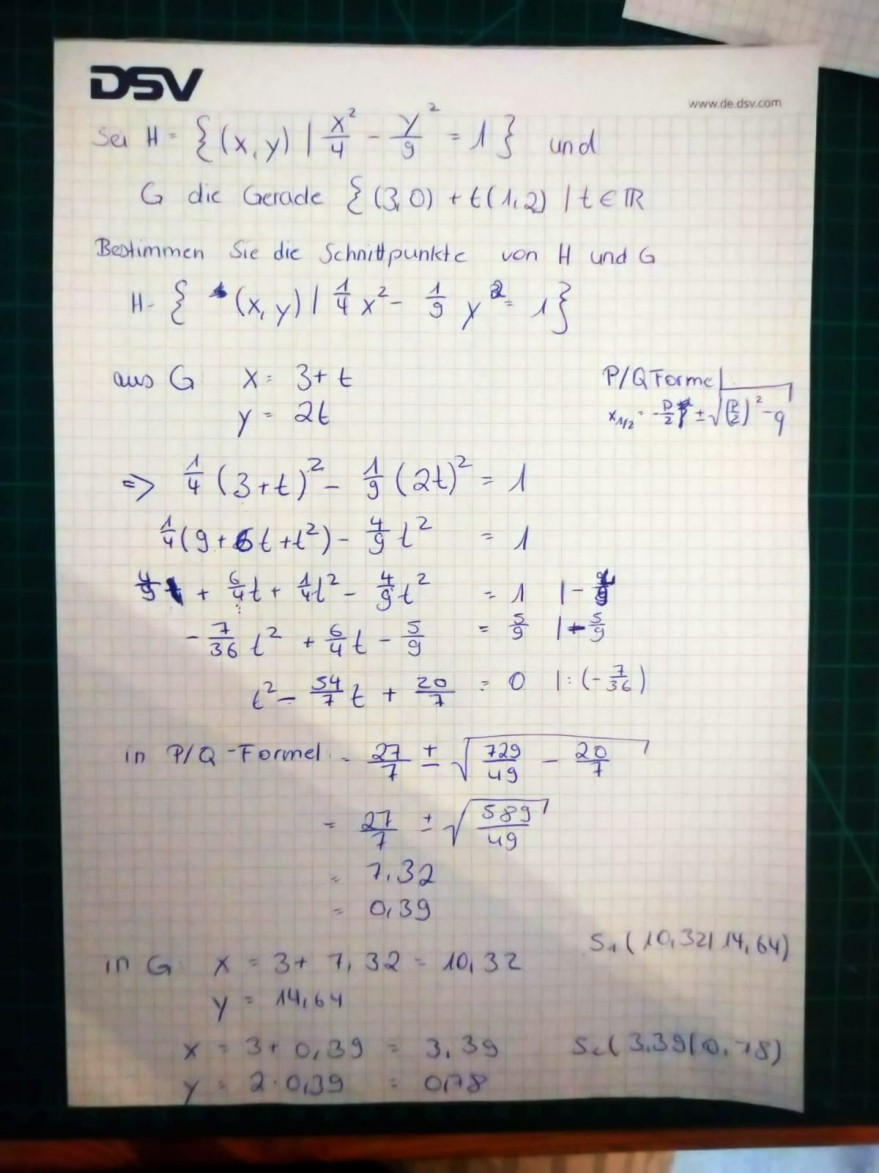 DSV
www.de.dsv.com
Sei H = {(x,y) | x²/4 - y²/9 = 1} und
G die Gerade {(3,0) + t(1,2) | t ∈ ℝ
Bestimmen Sie die Schnittpunkte von H und G
H = { (x,y) | 1/4 x² - 1/9 y² = 1}
aus G x = 3 + t
y = 2t
P/Q Formel
x1/2 = -p/2 ± √((p/2)² - q)
=> 1/4 (3+t)² - 1/9 (2t)² = 1
1/4 (9 + 6t + t²) - 4/9 t² = 1
+ 6/4 t + 1/4 t² - 4/9 t² = 1 | -
- 7/36 t² + 6/4 t - 5/9 = 5/9 | - 5/9
t² - 54/7 t + 20/7 = 0 | : (- 7/36)
in P/Q-Formel = 27/7 ± √(729/49 - 20/7)
= 27/7 ± √(589/49)
= 7,32
= 0,39
in G x = 3 + 7,32 = 10,32
S1 (10,32 | 14,64)
y = 14,64
x = 3 + 0,39 = 3,39
S2 (3,39 | 0,78)
y = 2 · 0,39 = 0,78